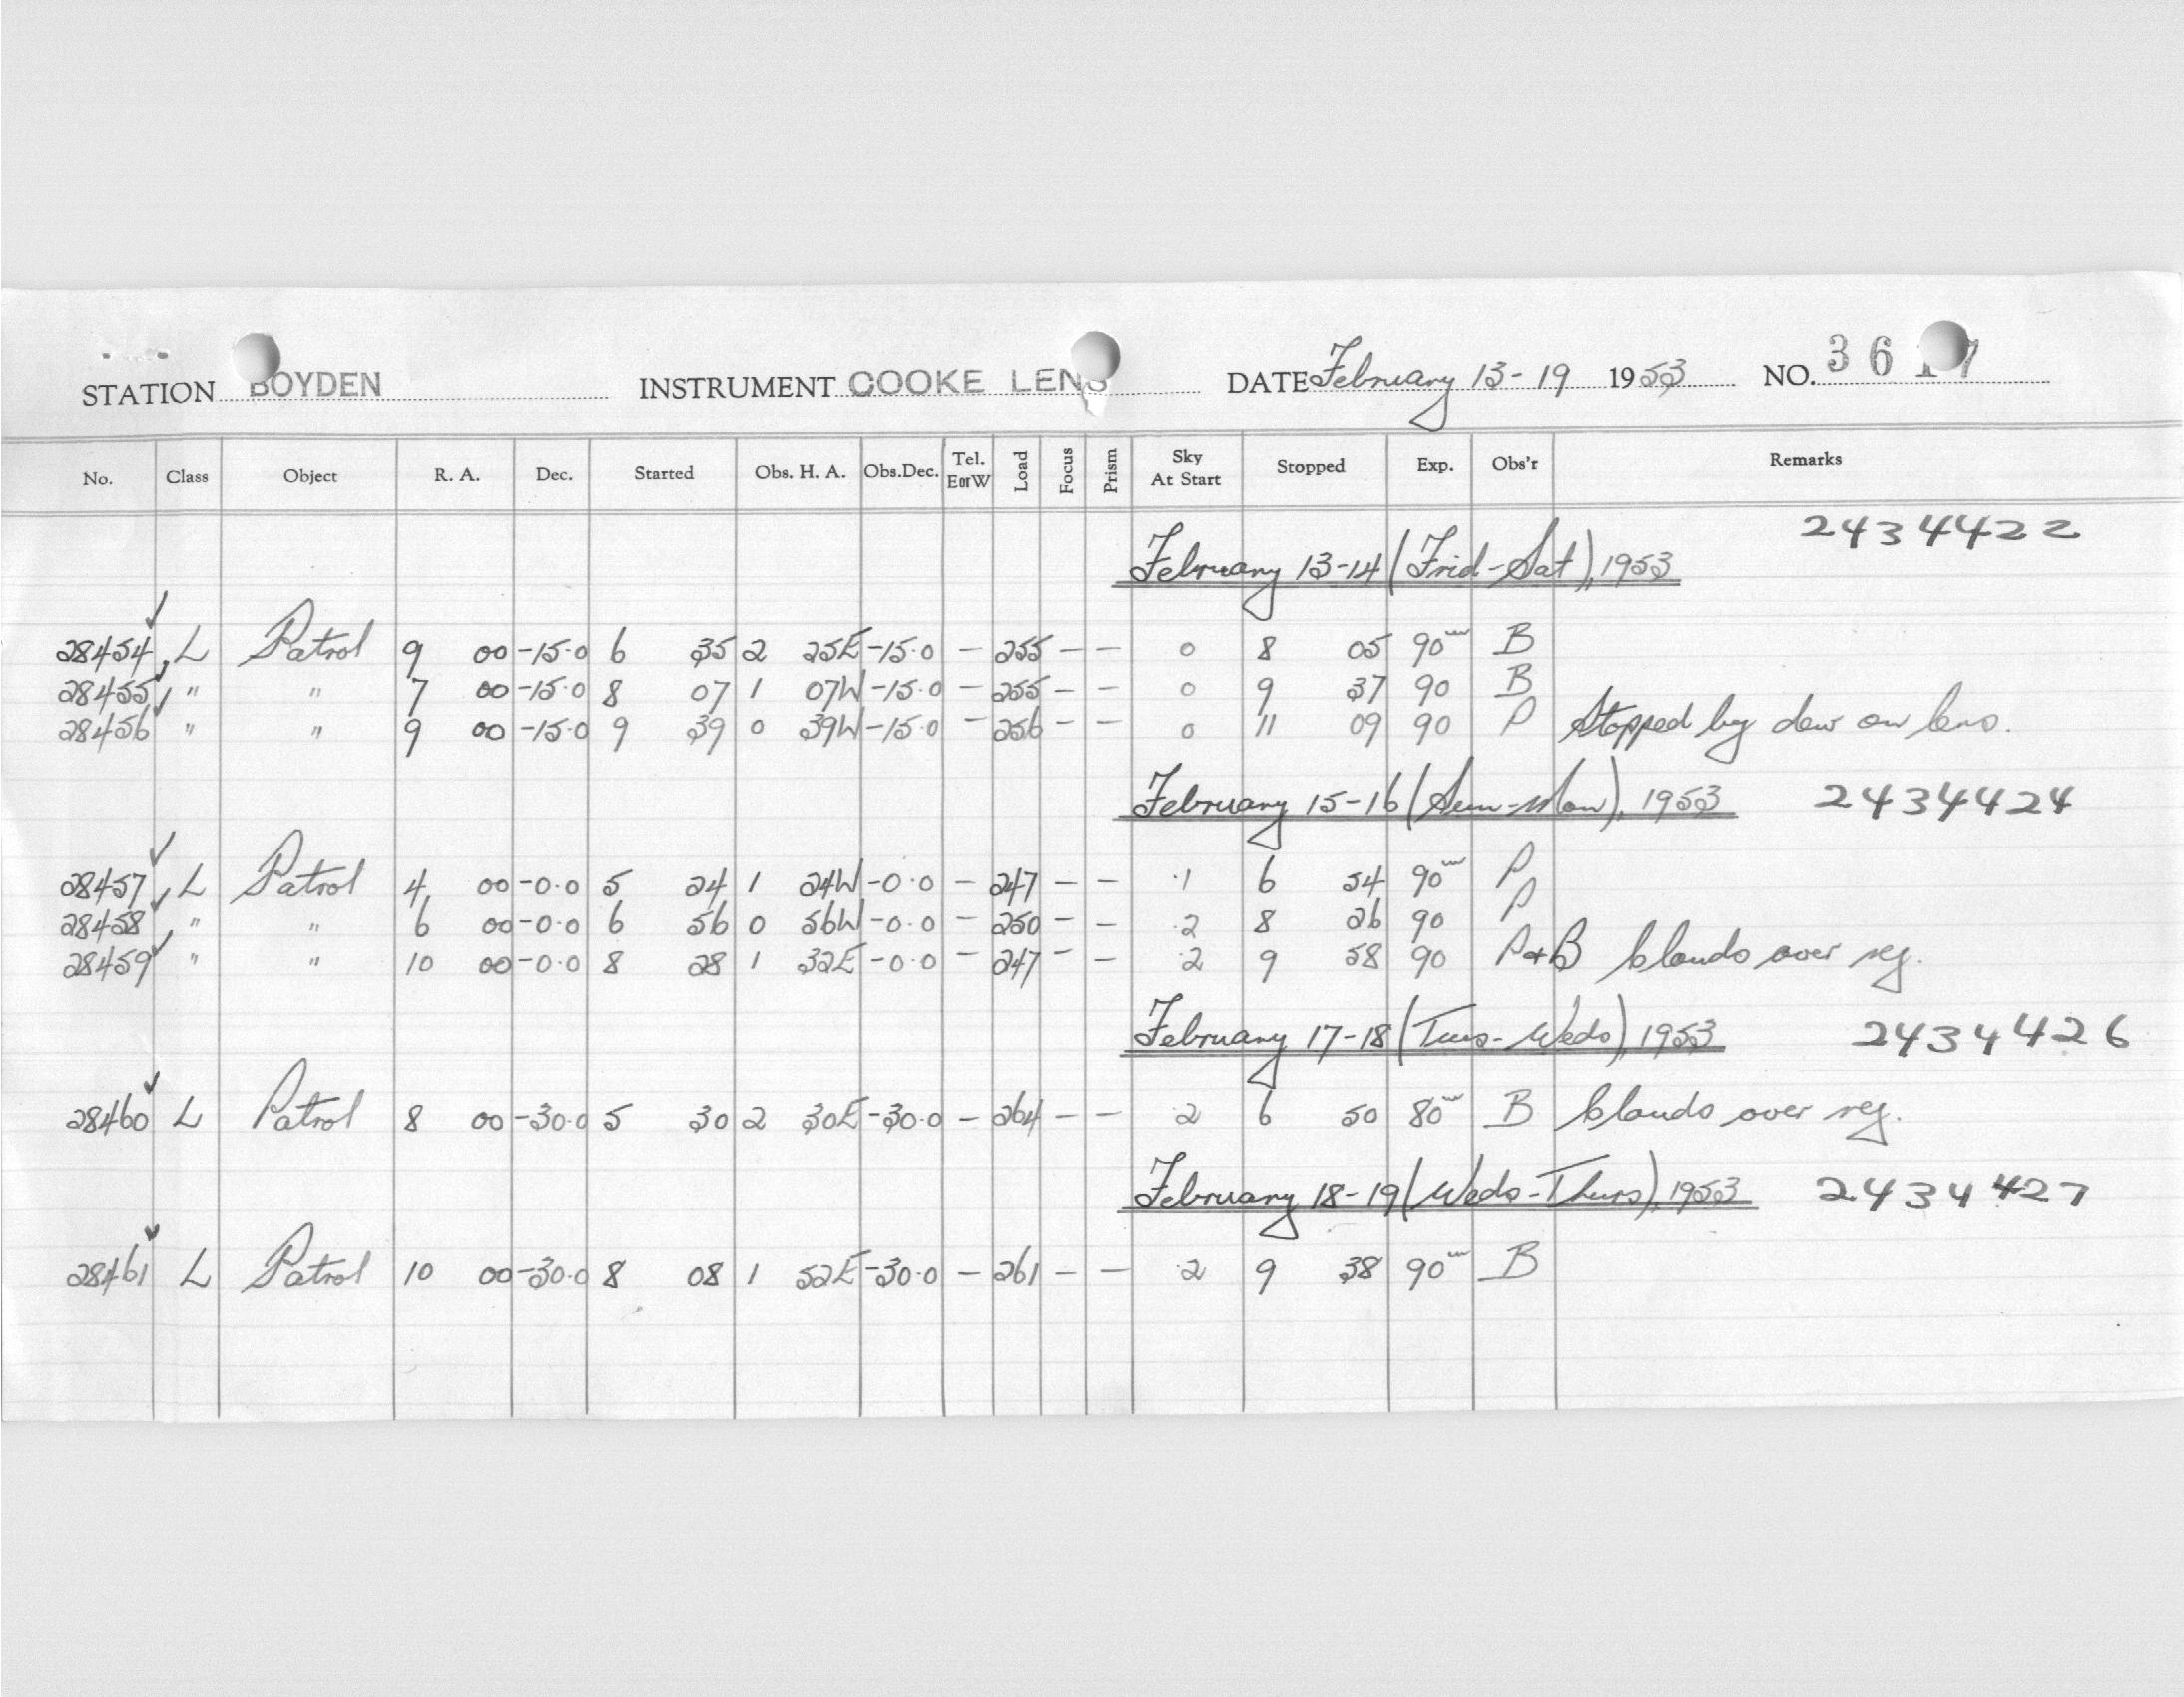 STATION BOYDEN INSTRUMENT COOKE LENS DATE February 13-19 1953 NO. 36 7
No. Class Object R. A. Dec. Started Obs. H. A. Obs.Dec. Tel. EorW Load Focus Prism Sky At Start Stopped Exp. Obs'r Remarks
2434422
February 13-14 (Frid-Sat), 1953
28454 L Patrol 9 00 -15.0 6 35 2 25E -15.0 - 255 - - 0 8 05 90m B
28455 " " 7 00 -15.0 8 07 1 07W -15.0 - 255 - - 0 9 37 90 B
28456 " " 9 00 -15.0 9 39 0 39W -15.0 - 256 - - 0 11 09 90 P Stopped by dew on lens.
February 15-16 (Sun-Mon), 1953 2434424
28457 L Patrol 4 00 -0.0 5 24 1 24W -0.0 - 247 - - .1 6 54 90m P
28458 " " 6 00 -0.0 6 56 0 56W -0.0 - 250 - - .2 8 26 90 P
28459 " " 10 00 -0.0 8 28 1 32E -0.0 - 247 - - .2 9 58 90 P+B Clouds over reg.
February 17-18 (Tues-Weds), 1953 2434426
28460 L Patrol 8 00 -30.0 5 30 2 30E -30.0 - 264 - - .2 6 50 80m B Clouds over reg.
February 18-19 (Weds-Thurs), 1953 2434427
28461 L Patrol 10 00 -30.0 8 08 1 52E -30.0 - 261 - - .2 9 38 90m B